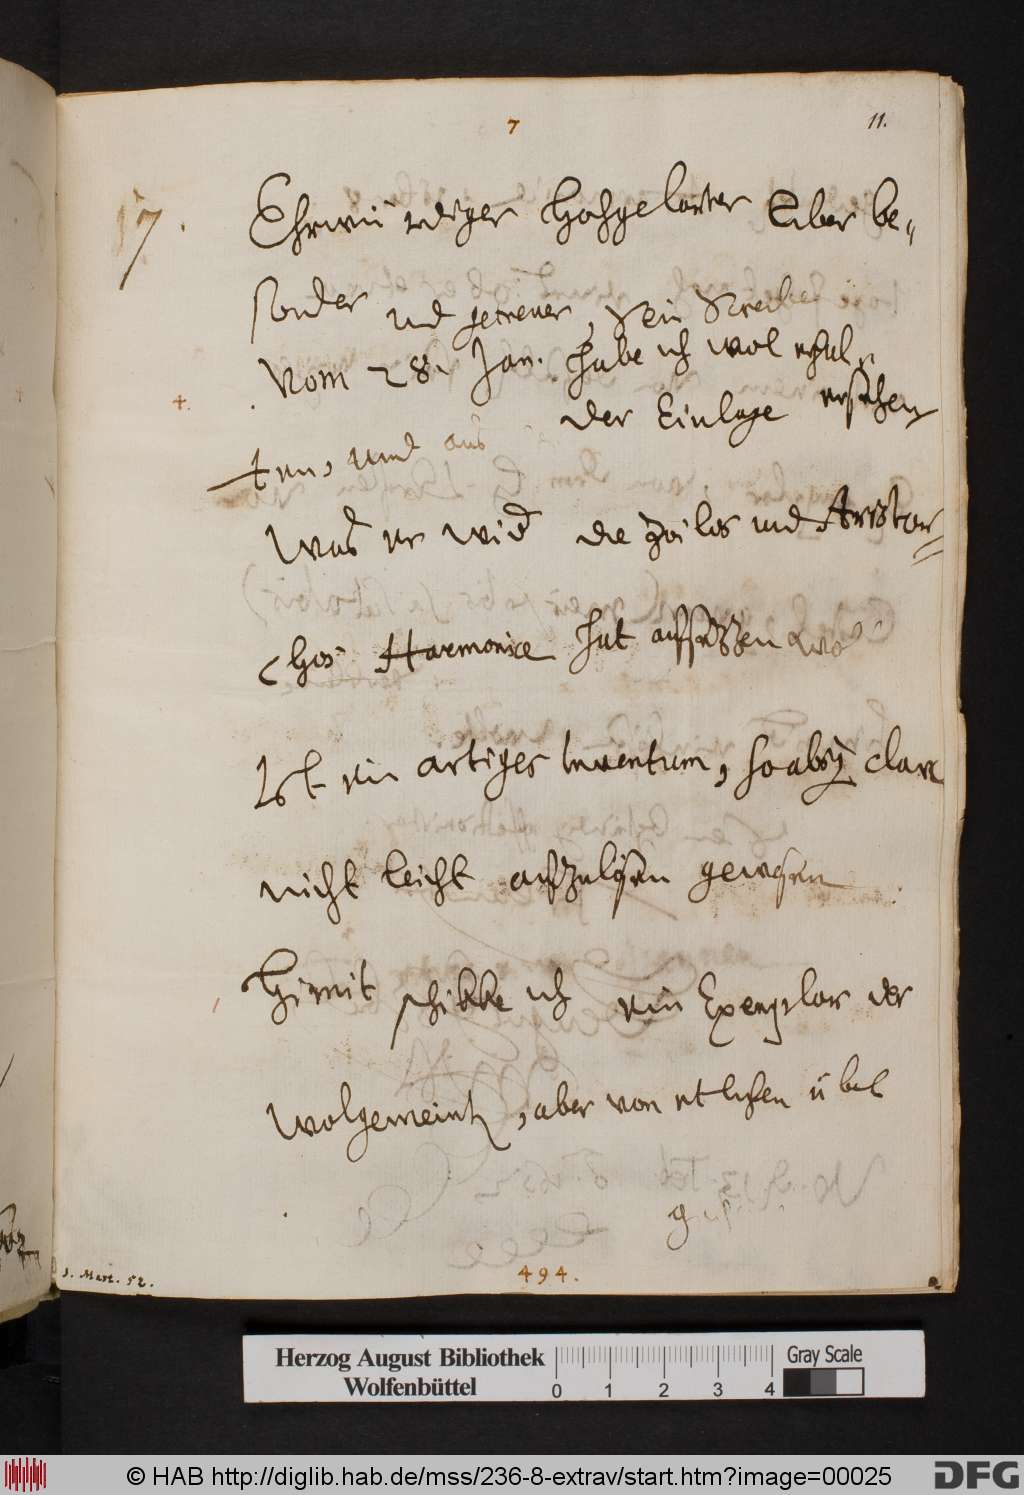 7
11.
17.
Ehrwürdiger Hochgelarter Liber be-
sonder und getreuer, Sein Screiben
Vom 28. Jan. habe ich wol erhal-
ten, und aus der Einlage ersehen
Was er wid die Zoilos und Aristar-
chos Harmonicæ hat aufsetzen
Ist ein artiges Inventum, so absq clave
nicht leicht aufzulösen gewesen
Himit schikke ich ein Exemplar der
Wolgemeint, aber von etlichen übel
494.
1. Mart. 52.
Herzog August Bibliothek
Wolfenbüttel
0 1 2 3 4
Gray Scale
© HAB http://diglib.hab.de/mss/236-8-extrav/start.htm?image=00025
DFG